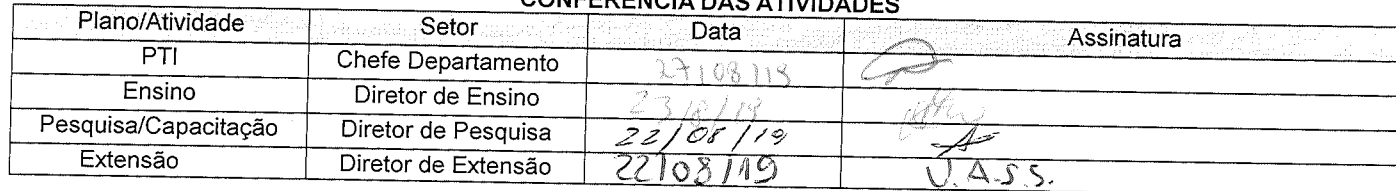 CONFERÊNCIA DAS ATIVIDADES
Plano/Atividade Setor Data Assinatura
PTI Chefe Departamento 27/08/19
Ensino Diretor de Ensino 23/8/19
Pesquisa/Capacitação Diretor de Pesquisa 22/08/19
Extensão Diretor de Extensão 22/08/19 J.A.S.S.